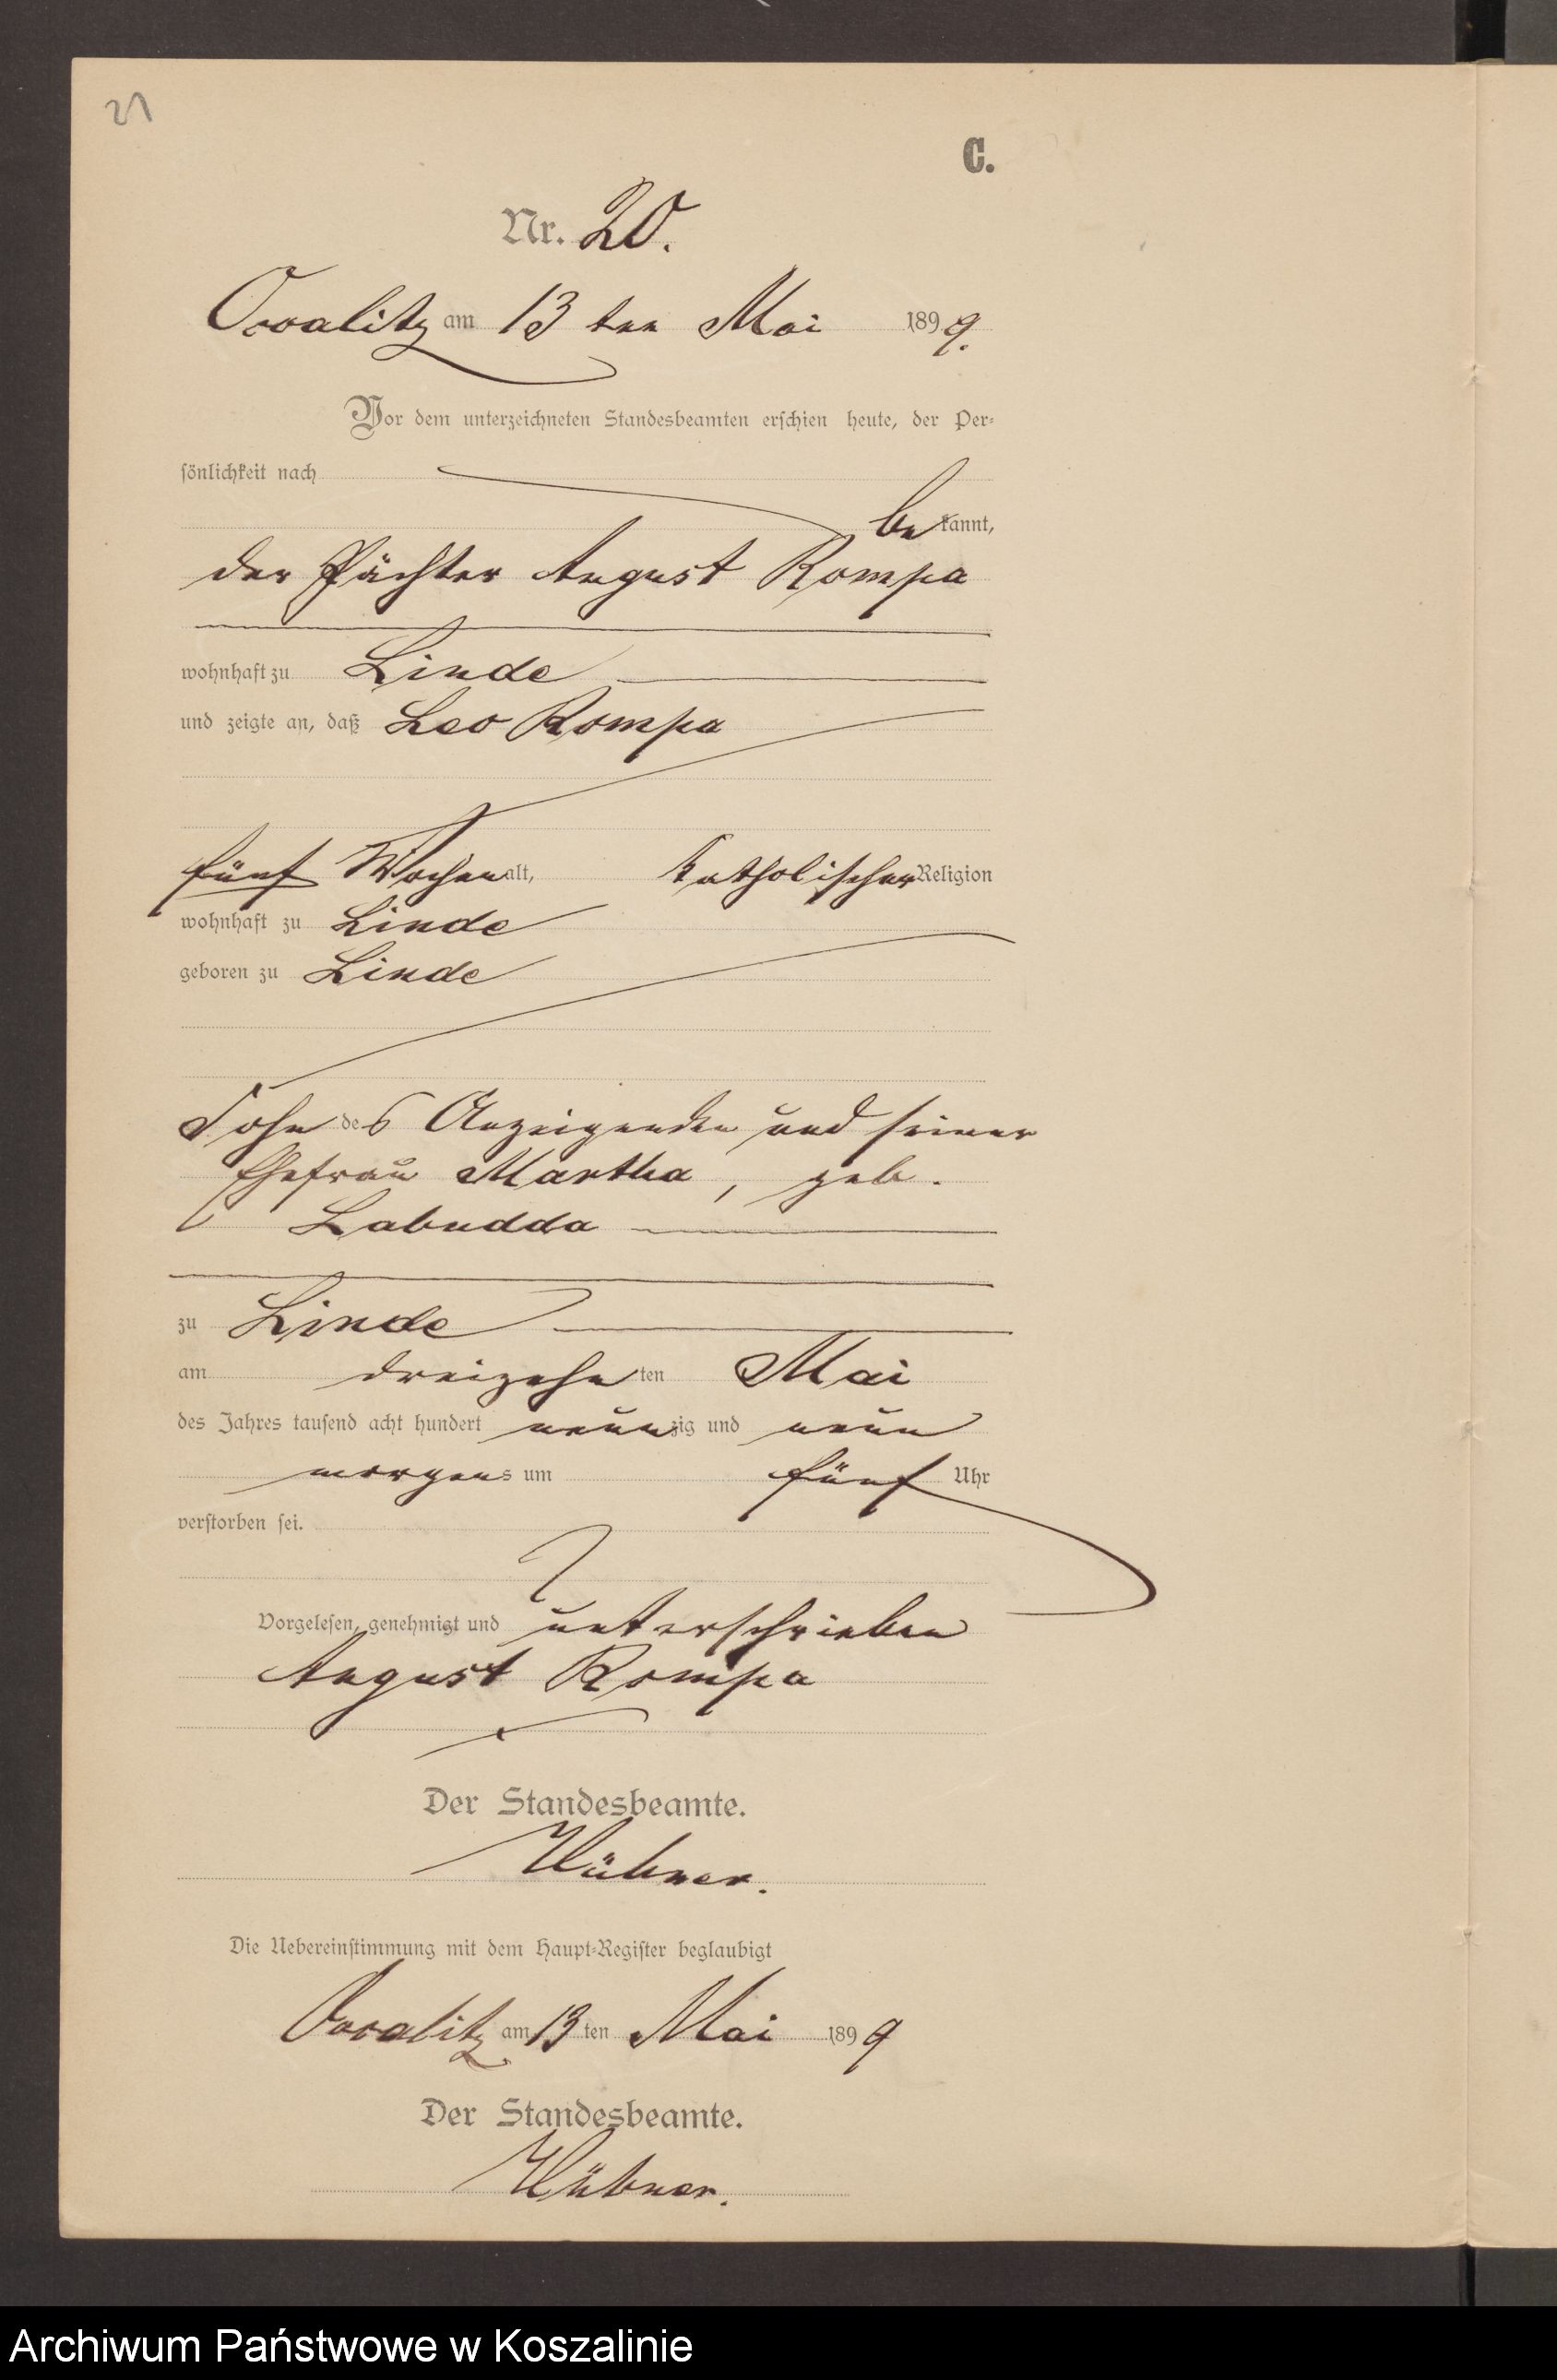 21
C.
Nr. 20.
Ossalitz am 13 ten Mai 1899.
Vor dem unterzeichneten Standesbeamten erschien heute, der Per-
sönlichkeit nach
bekannt,
der Pächter August Rompa
wohnhaft zu Linde
und zeigte an, daß Leo Rompa
fünf Wochen alt, katholischer Religion
wohnhaft zu Linde
geboren zu Linde
Sohn des Anzeigenden und seiner
Ehefrau Martha, geb.
Labudda
zu Linde
am dreizehnten Mai
des Jahres tausend acht hundert neunzig und neun
morgens um fünf Uhr
verstorben sei.
Vorgelesen, genehmigt und unterschrieben
August Rompa
Der Standesbeamte.
Hübner.
Die Uebereinstimmung mit dem Haupt-Register beglaubigt
Ossalitz am 13 ten Mai 1899
Der Standesbeamte.
Hübner.
Archiwum Państwowe w Koszalinie